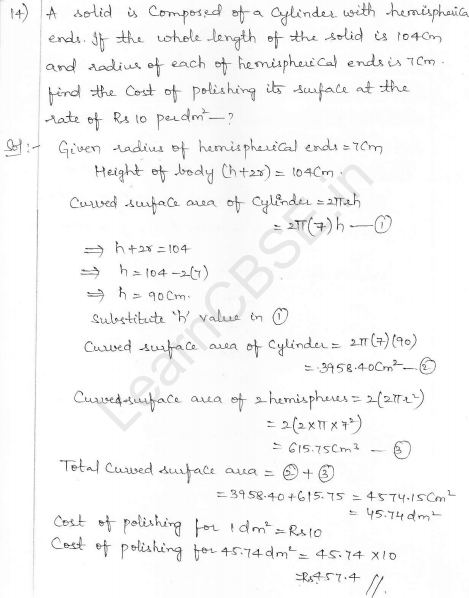 14) A solid is Composed of a Cylinder with hemispherica
ends. If the whole length of the solid is 104cm
and radius of each of hemispherical ends is 7cm.
find the Cost of polishing its surface at the
rate of Rs 10 per dm² — ?
Sol :- Given radius of hemispherical ends = 7cm
Height of body (h+2r) = 104cm.
Curved surface area of Cylinder = 2πrh
= 2π(7)h — ①
⇒ h+2r = 104
⇒ h = 104 - 2(7)
⇒ h = 90cm.
Substitute 'h' value in ①
Curved surface area of Cylinder = 2π(7)(90)
= 3958.40cm² — ②
Curved surface area of 2 hemispheres = 2(2πr²)
= 2(2×π×7²)
= 615.75cm³ — ③
Total Curved surface area = ② + ③
= 3958.40 + 615.75 = 4574.15cm²
= 45.74dm²
Cost of polishing for 1dm² = Rs10
Cost of polishing for 45.74dm² = 45.74 × 10
= Rs.457.4 //.
LearnCBSE.in